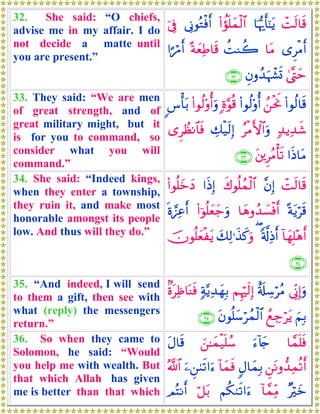 32. She said: “O chiefs,
advise me in my affair. I do
not decide a matte until
you are present.”
قَالَتْ يَٰٓأَيُّهَا ٱلْمَلَؤُا۟ أَفْتُونِى فِىٓ
أَمْرِى مَا كُنتُ قَاطِعَةً أَمْرًا
حَتَّىٰ تَشْهَدُونِ ﴿٣٢﴾
33. They said: “We are men
of great strength, and of
great military might, but it
is for you to command, so
consider what you will
command.”
قَالُوا۟ نَحْنُ أُو۟لُوا۟ قُوَّةٍ وَأُو۟لُوا۟ بَأْسٍ
شَدِيدٍ وَٱلْأَمْرُ إِلَيْكِ فَٱنظُرِى
مَاذَا تَأْمُرِينَ ﴿٣٣﴾
34. She said: “Indeed kings,
when they enter a township,
they ruin it, and make most
honorable amongst its people
low. And thus will they do.”
قَالَتْ إِنَّ ٱلْمُلُوكَ إِذَا دَخَلُوا۟
قَرْيَةً أَفْسَدُوهَا وَجَعَلُوٓا۟ أَعِزَّةَ
أَهْلِهَآ أَذِلَّةً ۖ وَكَذَٰلِكَ يَفْعَلُونَ
﴿٣٤﴾
35. “And indeed, I will send
to them a gift, then see with
what (reply) the messengers
return.”
وَإِنِّى مُرْسِلَةٌ إِلَيْهِم بِهَدِيَّةٍ فَنَاظِرَةٌۢ
بِمَ يَرْجِعُ ٱلْمُرْسَلُونَ ﴿٣٥﴾
36. So when they came to
Solomon, he said: “Would
you help me with wealth. But
that which Allah has given
me is better than that which
فَلَمَّا جَآءَ سُلَيْمَٰنَ قَالَ
أَتُمِدُّونَنِ بِمَالٍ فَمَآ ءَاتَىٰنِۦَ ٱللَّهُ
خَيْرٌ مِّمَّآ ءَاتَىٰكُم بَلْ أَنتُم